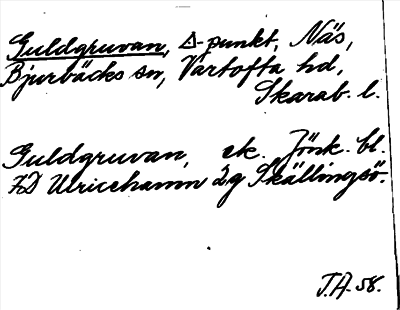 Guldgruvan, Δ-punkt, Näs,
Bjurbäcks sn, Vartofta hd,
Skarab. l.
Guldgruvan, ek. Jönk. bl.
7D Ulricehamn 2g Skällingsö.
J.A. 58.